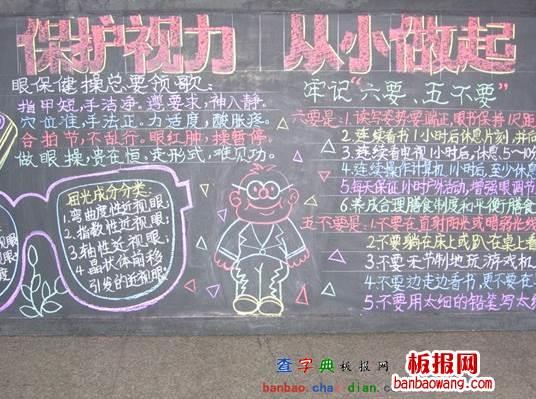 保护视力 从小做起
眼保健操总要领歌:
指甲短,手洁净。遵要求,神入静。
穴位准,手法正。力适度,酸胀疼。
合拍节,不乱行。眼红肿,操暂停。
做眼操,贵在恒。走形式,难见功。
屈光成份分类:
1.弯曲度性近视眼;
2.指数性近视眼;
3.轴性近视眼;
4.晶状体前移
引发的近视眼。
牢记“六要、五不要”
六要是:1.读写姿势要端正,眼书保持1尺距
2.连续看书1小时后休息片刻,并向
3.连续看电视1小时后,休息5~10
4.连续操作计算机1小时后,至少休息
5.每天保证1小时户外活动,增强眼调节
6.养成合理膳食制度和平衡膳食
五不要是:1.不要在直射阳光或暗弱光线
2.不要躺在床上或趴在桌上看
3.不要无节制地玩游戏机
4.不要边走边看书,更不要在
5.不要用太细的铅笔写太
查字典 板报网
板报网
banbaowang.com